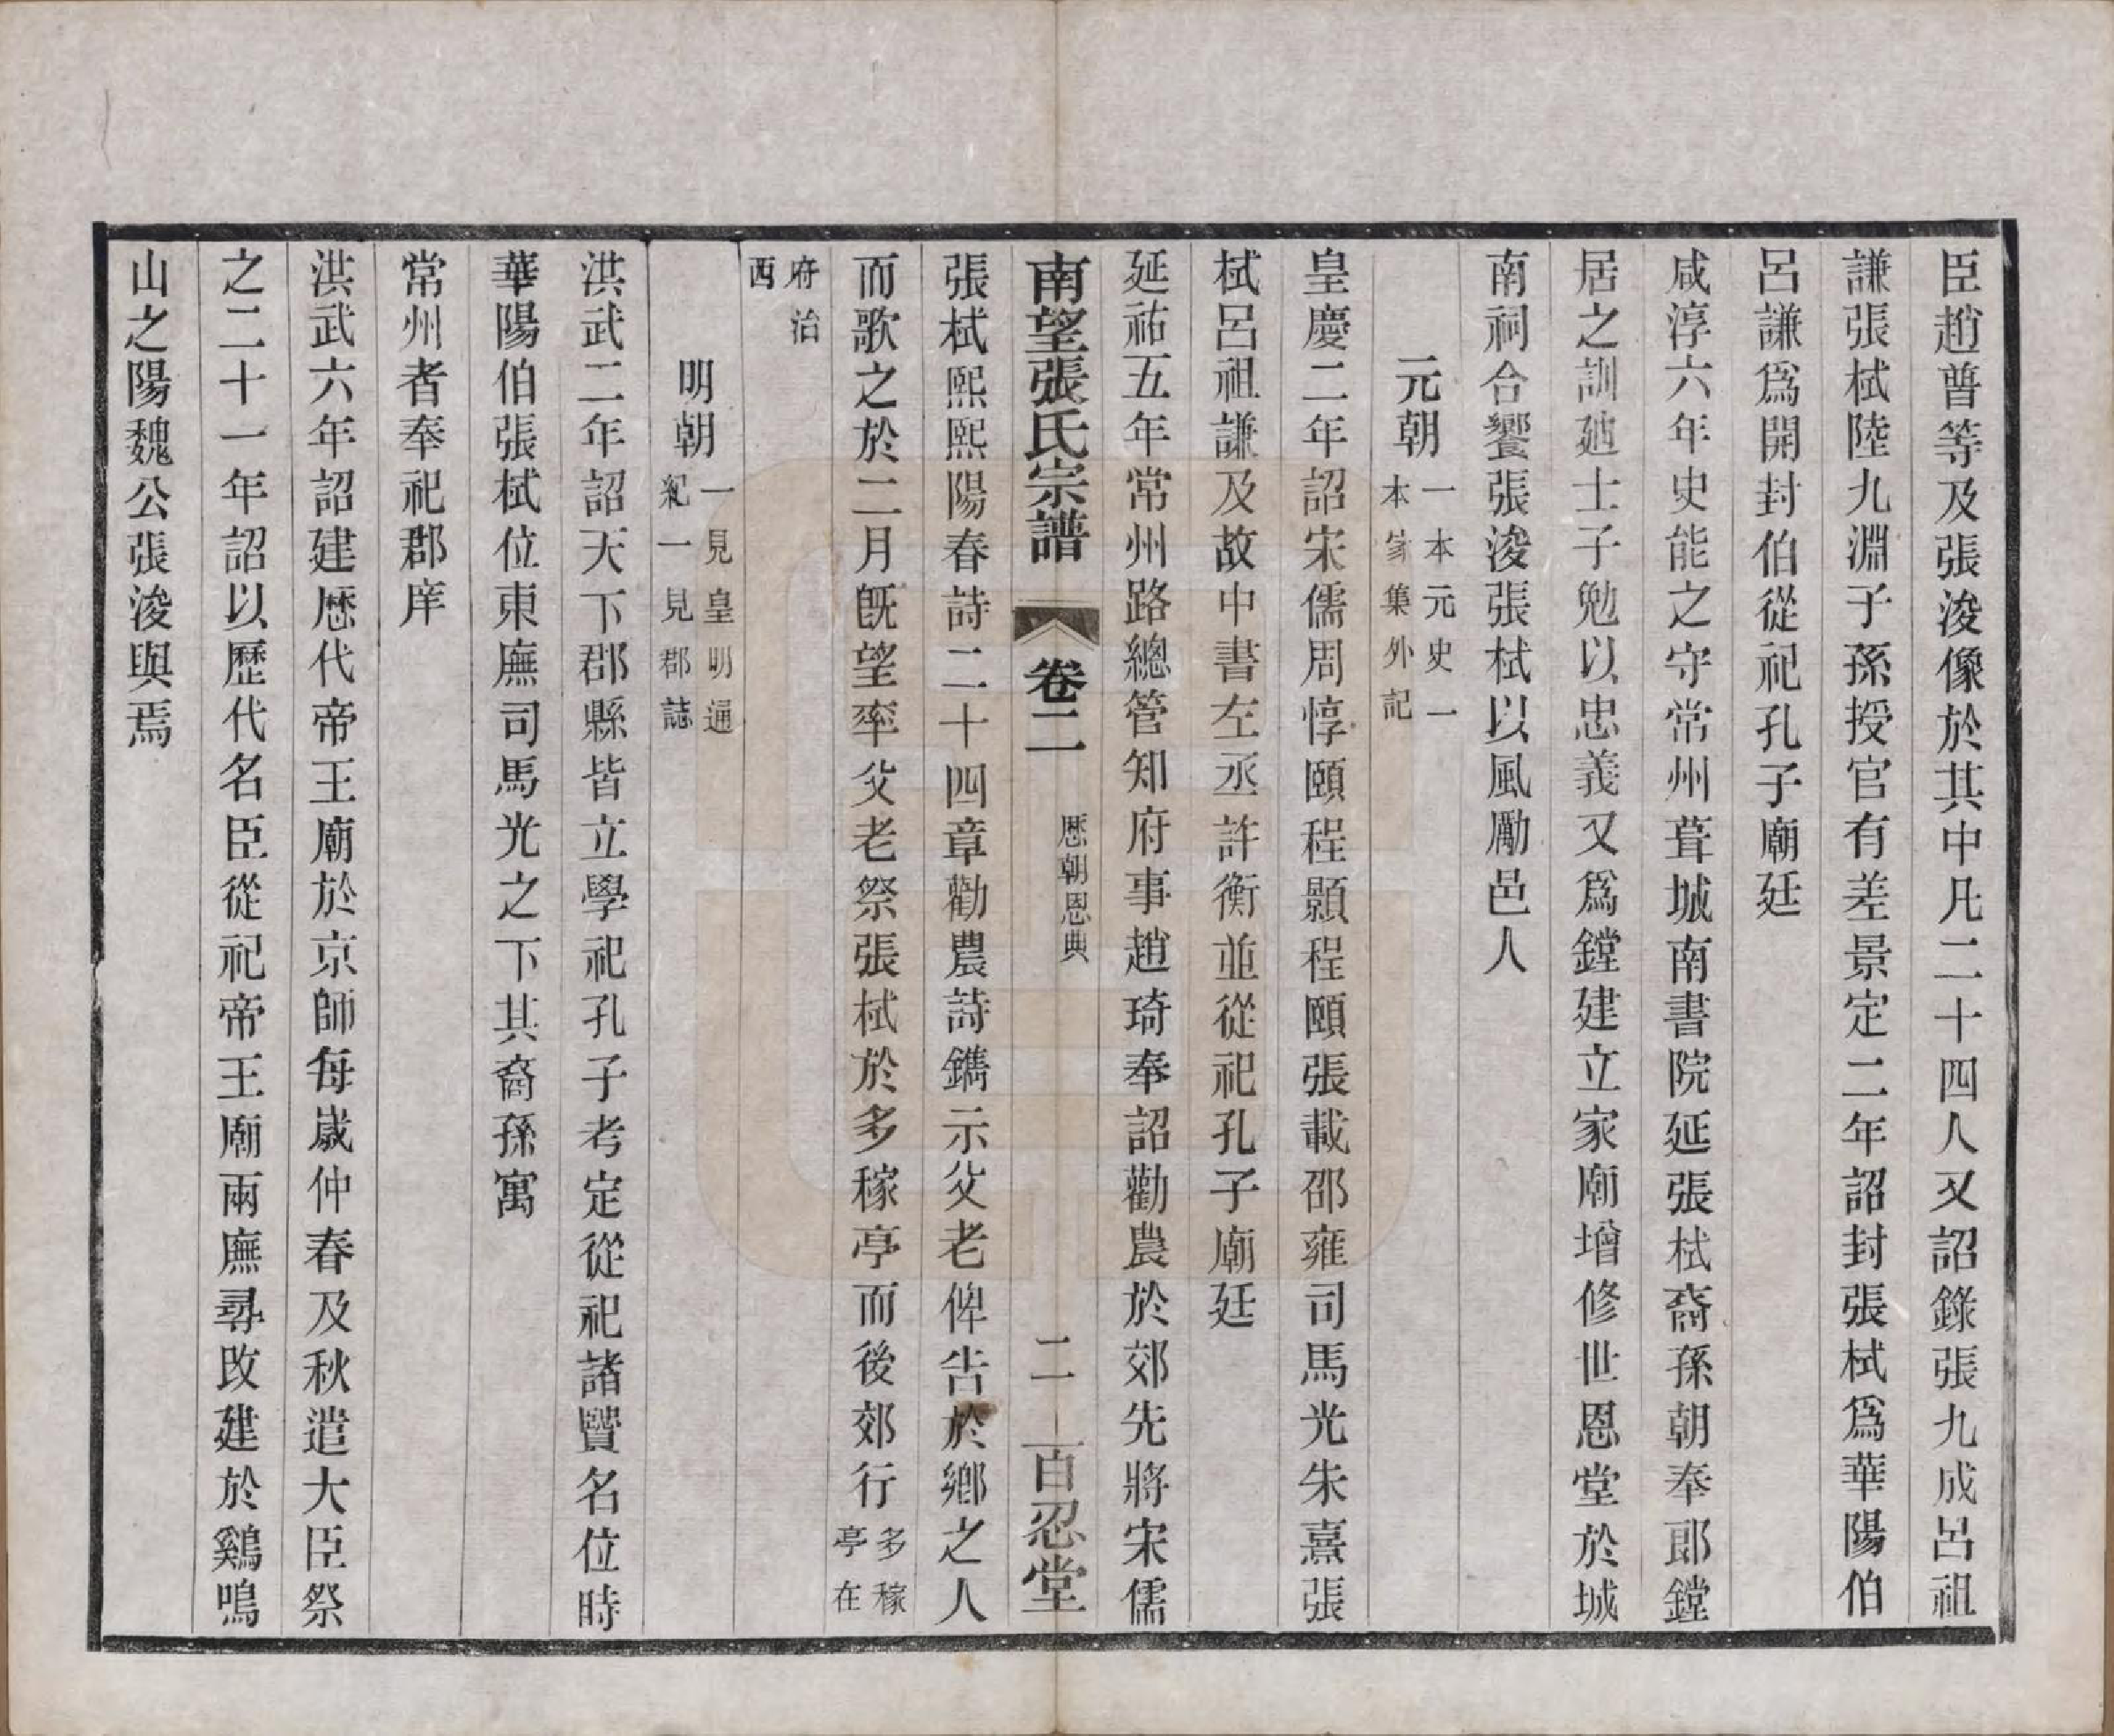 臣趙普等及張浚像於其中凡二十四人又詔錄張九成呂祖
謙張栻陸九淵子孫授官有差景定二年詔封張栻爲華陽伯
呂謙爲開封伯從祀孔子廟廷
咸淳六年史能之守常州葺城南書院延張栻裔孫朝奉郎鏜
居之訓廸士子勉以忠義又爲鏜建立家廟增修世恩堂於城
南祠合饗張浚張栻以風勵邑人
元朝
一本元史一
本家集外記
皇慶二年詔宋儒周惇頤程顥程頤張載邵雍司馬光朱熹張
栻呂祖謙及故中書左丞許衡並從祀孔子廟廷
延祐五年常州路總管知府事趙琦奉詔勸農於郊先將宋儒
南望張氏宗譜 卷二 歷朝恩典 二 百忍堂
張栻熙熙陽春詩二十四章勸農詩鐫示父老俾告於鄉之人
而歌之於二月旣望率父老祭張栻於多稼亭而後郊行
多稼
亭在
府治
西
明朝
一見皇明通
紀一見郡誌
洪武二年詔天下郡縣皆立學祀孔子考定從祀諸賢名位時
華陽伯張栻位東廡司馬光之下其裔孫寓
常州者奉祀郡庠
洪武六年詔建歷代帝王廟於京師每歲仲春及秋遣大臣祭
之二十一年詔以歷代名臣從祀帝王廟兩廡尋改建於鷄鳴
山之陽魏公張浚與焉